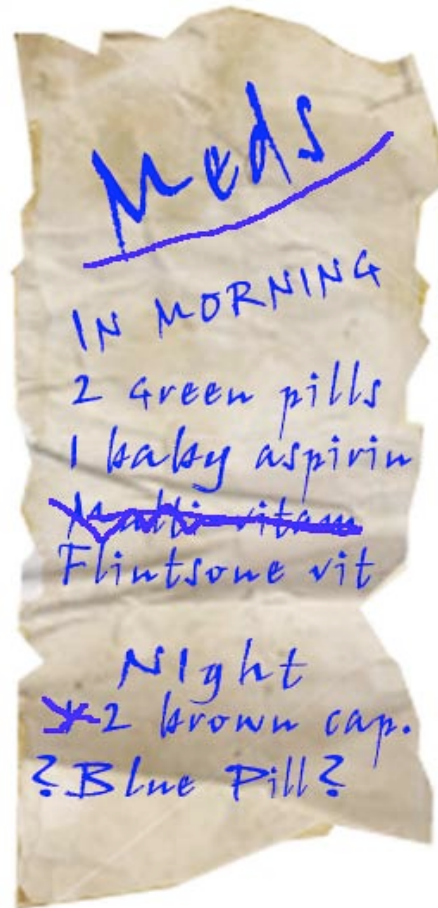 Meds
IN MORNING
2 Green pills
1 baby aspirin
Multi vitam
Flintsone vit
NIght
*2 brown cap.
?Blue Pill?